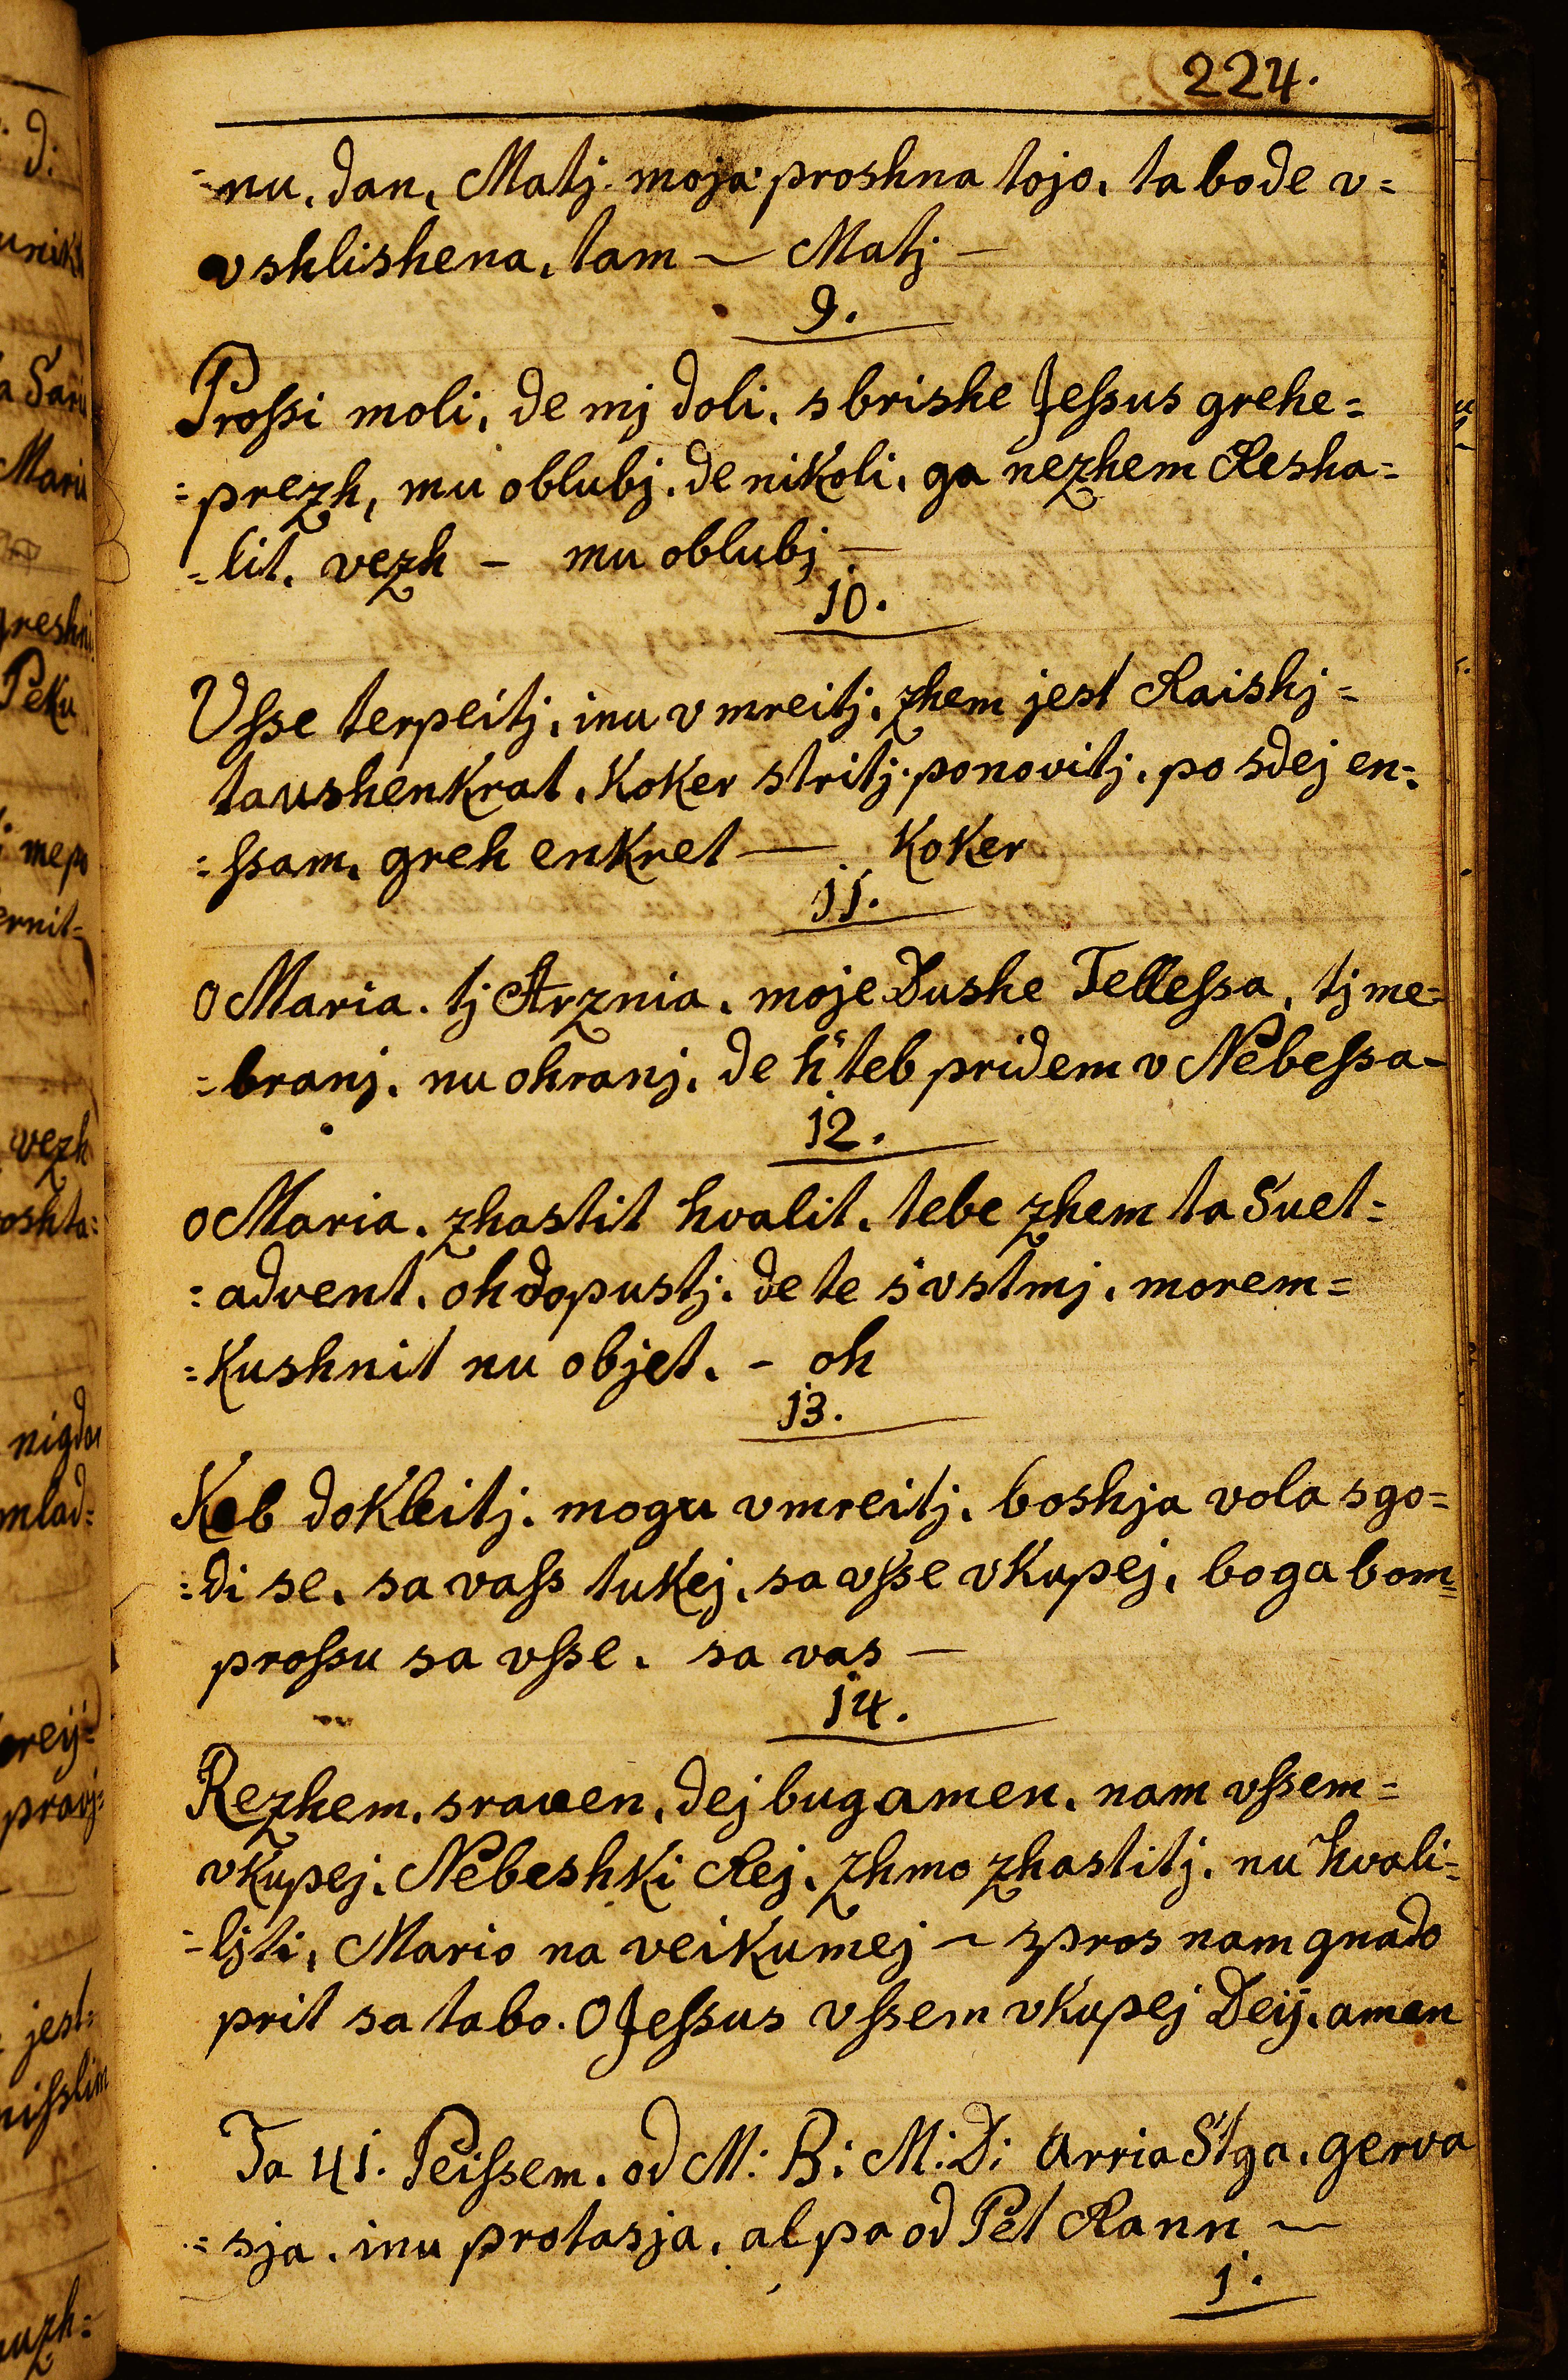 224.
=nu, dan, Matj moja proshna tojo, ta bode v=
vshlishena, tam ~ Matj —
9.
Prossi moli, de mj doli, sbrishe Jessus grehe=
=prezh, mu oblubj, de nikoli, ga nezhem Resha=
=lit, vezh — mu oblubj —
10.
Vsse terpeitj, inu vmreitj, zhem jest Raishj=
taushenkrat, koker stritj, ponovitj, po sdej en=
=ssam, greh enkret — koker
11.
O Maria. tj Arznia, moje Dushe Tellessa, tj me=
=branj, nu ohranj, de h'teb pridem v Nebessa-
12.
O Maria, zhastit hvalit, tebe zhem ta Suet=
=advent, oh dopustj, de te s'vstmj, morem=
=kushnit nu objet, - oh
13.
Keb dokleitj, mogu vmreitj, boshja vola sgo=
=di se, sa vass tukej, sa vsse vkupej, boga bom=
prossu sa vsse, sa vas —
14.
Rezhem, sraven, dej bug amen, nam vssem=
vkupej, Nebeshki Rej, zhmo zhastitj, nu hvali=
=ljti, Mario na veikumej ~ spros nam gnado
prit sa tabo. O Jessus vssem vkupej Deij, amen
Ta 41. Peissem, od M: B: M: D: Arria Stga. gerva
=sja, inu protasja, al pa od Pet Rann ~
1.